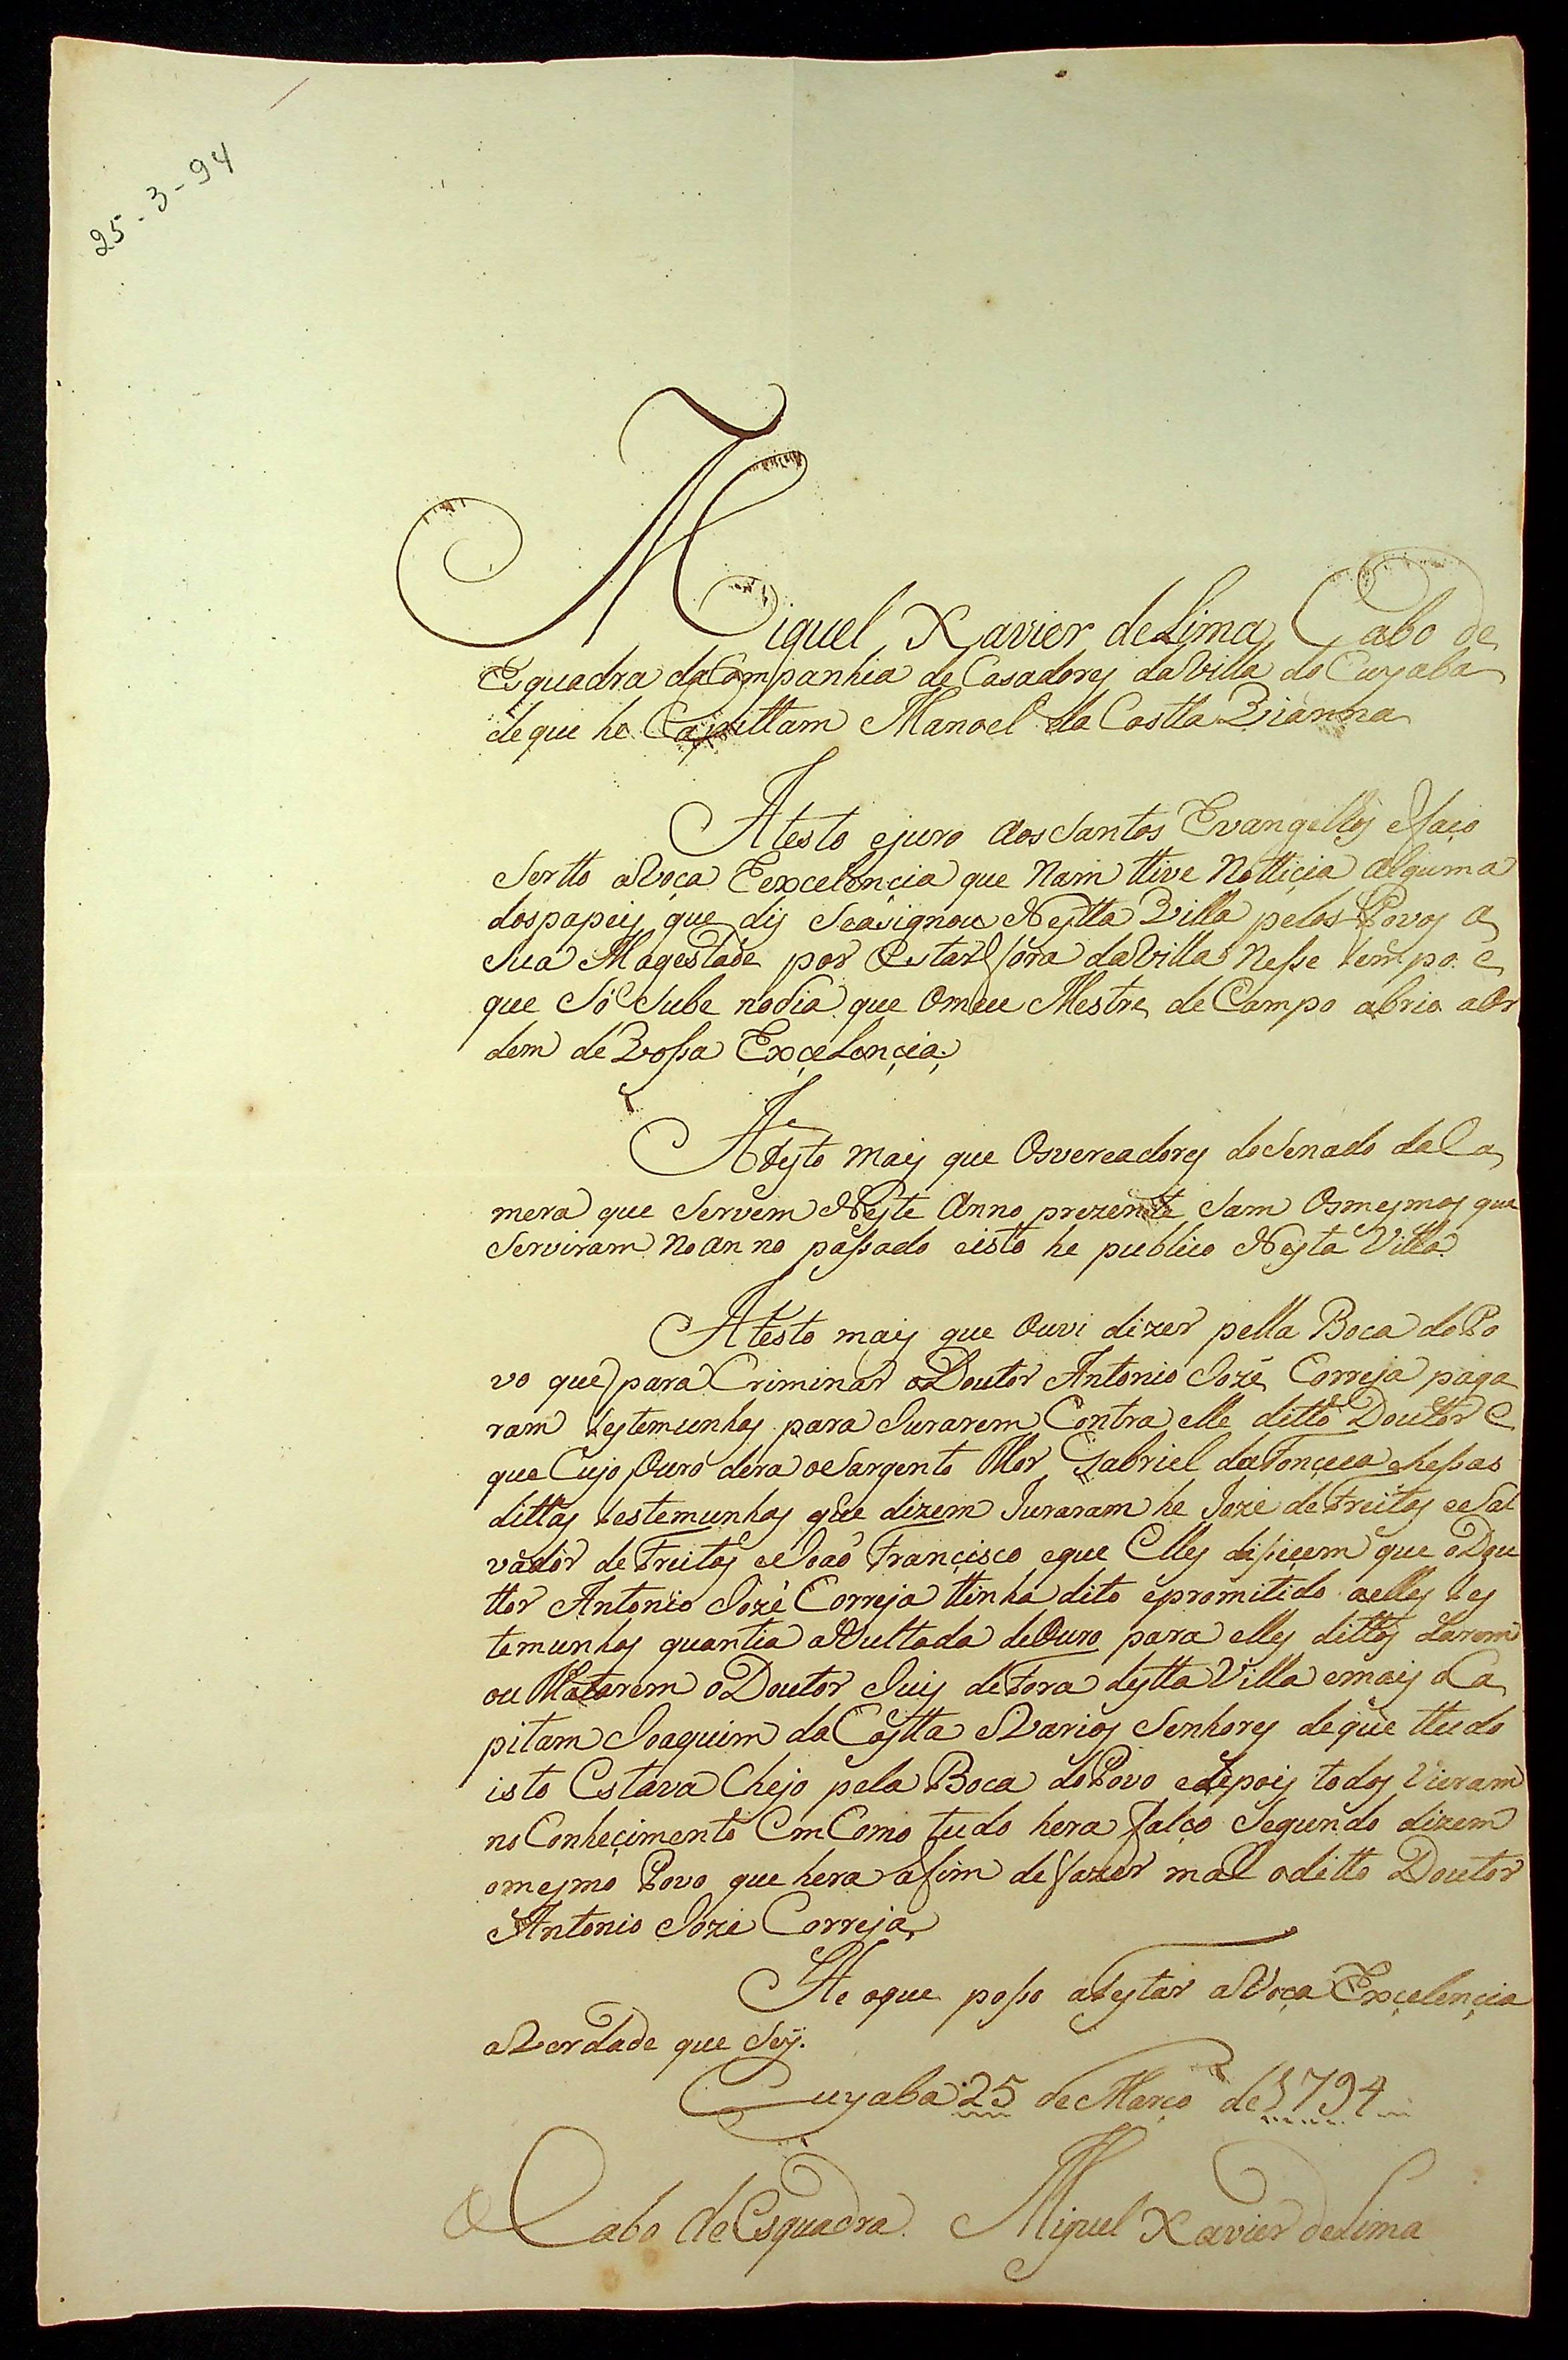 25-3-94
Miguel Xavier de Lima Cabo de
Esquadra da Companhia de Casadores da Villa do Cuyaba
de que he Capittam Manoel da Costta Vianna
Atesto ejuro aos Santos Evangelhos e faço
Sertto aVoça Eexcelencia que Nam ttive Notticia alguma
dos papeis que dis Seasignou Nestta Villa pelos Povos a
Sua Magestade por Estar fora da Villa Nesse tempo e
que Só Sube no dia que Omeu Mestre de Campo abrio a Or
dem de Vossa Exçelençia.
Atesto mais que Osvereadores do Senado da Ca
mera que Servem Neste Anno prezente Sam Osmesmos que
Serviram No anno passado eisto he publico Nesta Villa
Atesto mais que Ouvi dizer pella Boca do Po
vo que para Criminar oDoutor Antonio Jozé Correja paga
ram testemunhas para Jurarem Contra elle ditto Douttor e
que Cujo Ouro dera oSargento Mor Gabriel da Fonçeca ehessas
dittas testemunhas que dizem Juraram he Joze de Freitas eSal
vador de Freitas eJoaõ Françisco eque Elles disseem que oDou
ttor Antonio Jozé Correja ttinha dito epromitido aelles tes
temunhas quantia aVultada de Ouro para elles dittos darem
ou Matarem oDoutor Juis de Fora destta Villa emais oCa
pitam Joaquim da Costta eVarios Senhores deque ttudo
isto Estava Chejo pela Boca do Povo edepois todos Vieram
no Conheçimento Em Como tudo hera falço Segundo dizem
omesmo Povo que hera afim de fazer mal oditto Doutor
Antonio Joze Correja
He oque posso atestar aVoça Exçelençia
aVerdade que Sey.
Cuyaba 25 de Março de 1794
O Cabo de Esquadra. Miguel Xavier de Lima